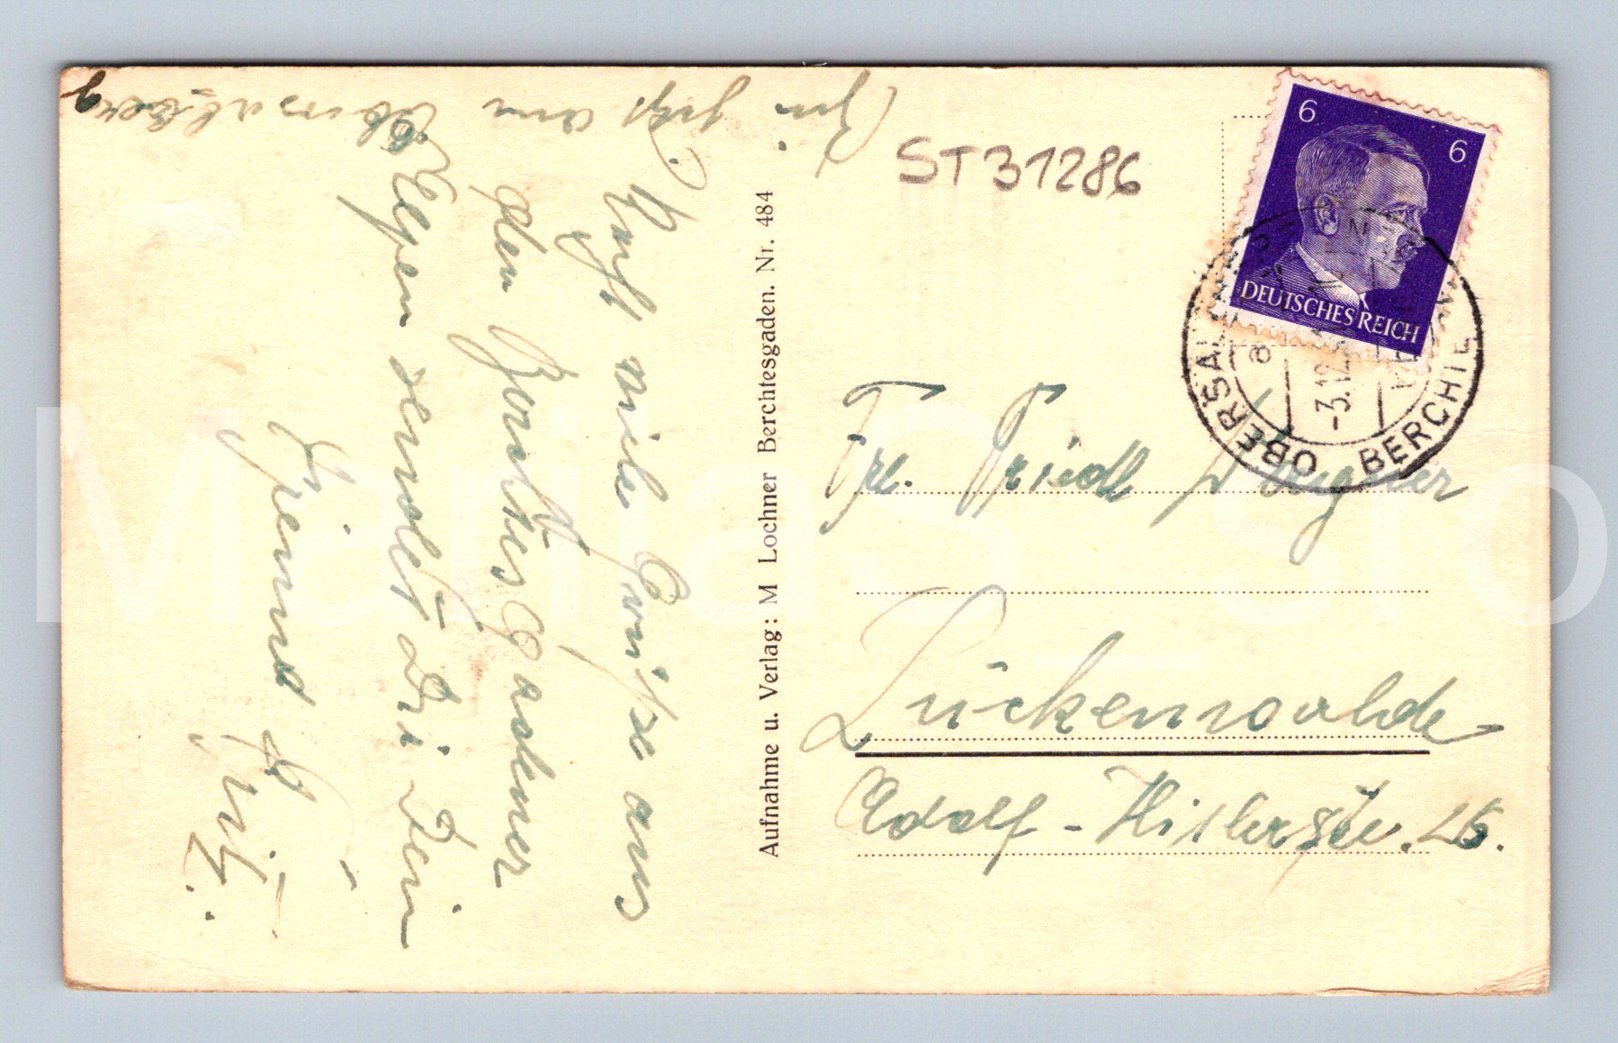 Bin jetzt am Obersalzberg
Recht viele Grüße aus
den Berchtesgadener
Alpen sendet Dir Dein
Freund Fritz.
Aufnahme u. Verlag: M Lochner Berchtesgaden. Nr. 484
ST31286
6 6
DEUTSCHES REICH
OBERSAL
BERCHTE
-3.12
a
Frl. Friedl Wegner
Luckenwalde
Adolf-Hitlerstr. 25.